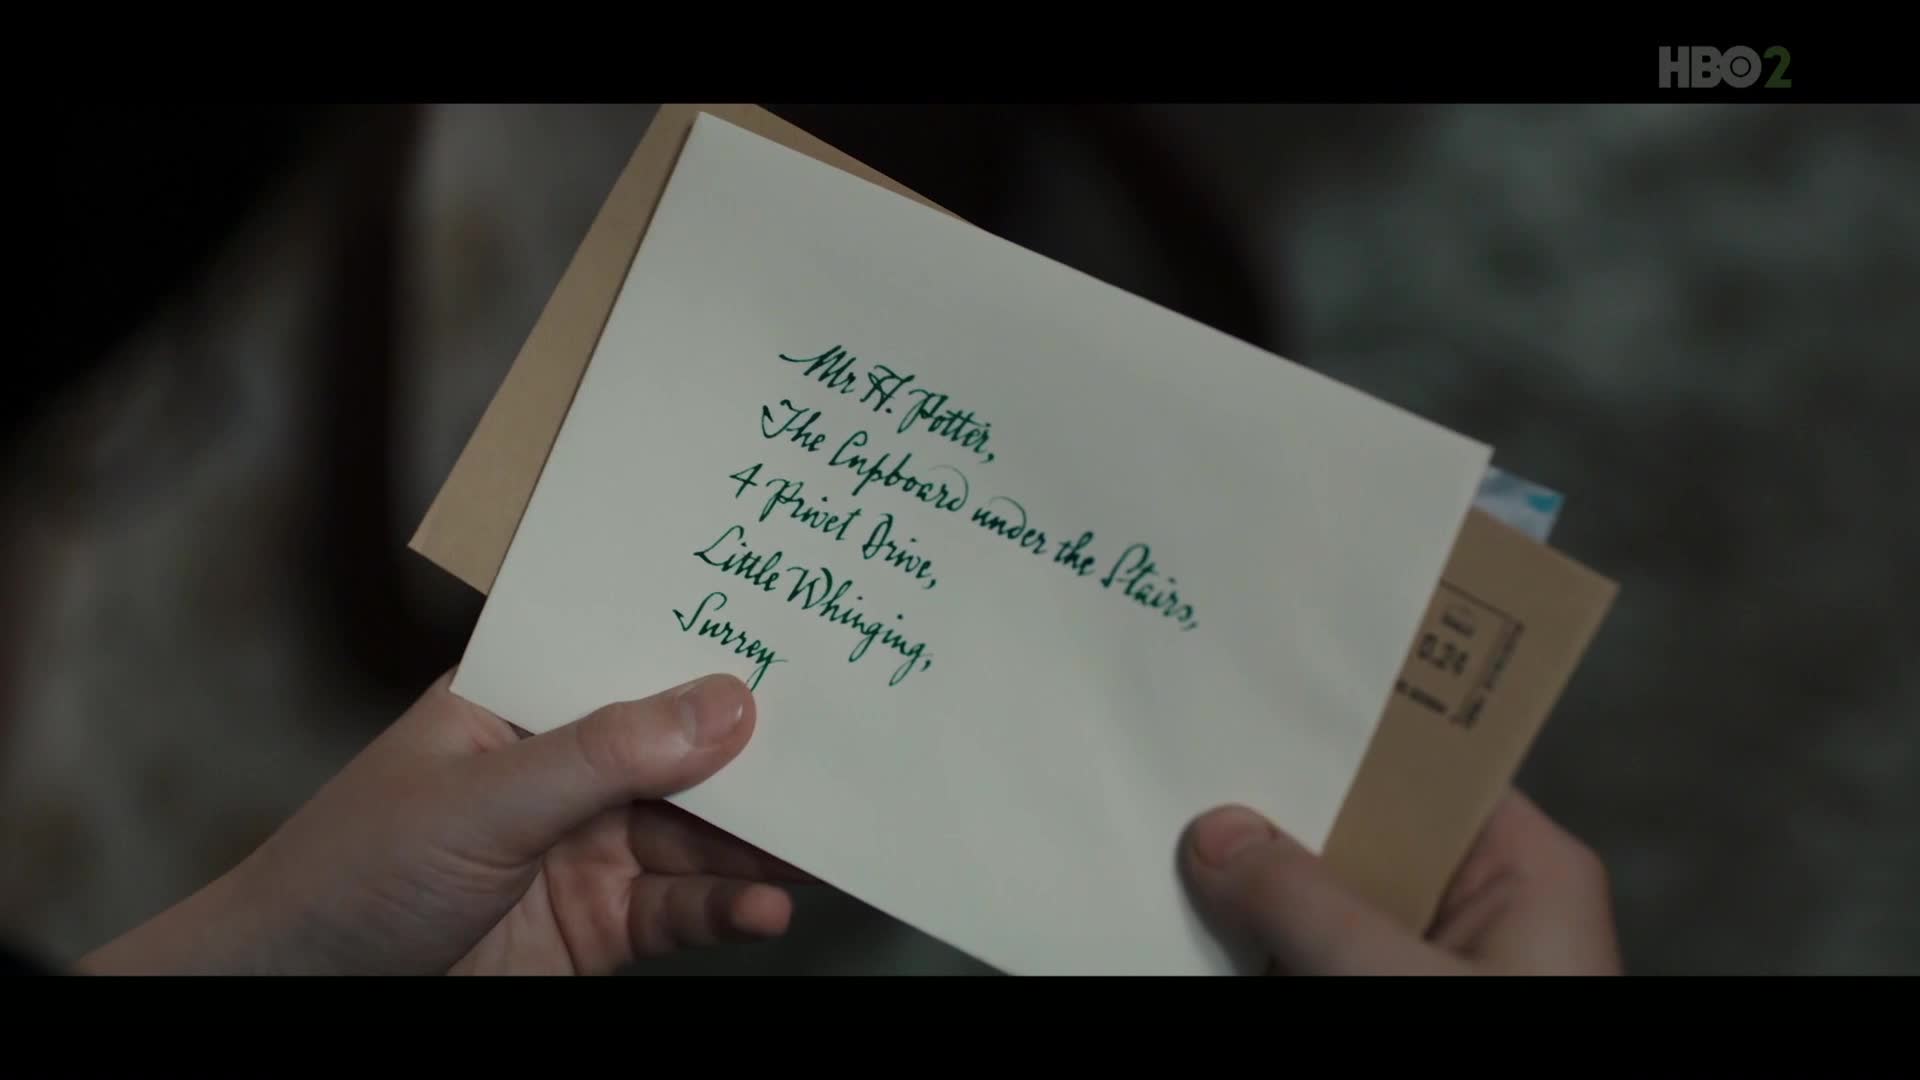 HBO2
Mr H. Potter,
The Cupboard under the Stairs,
4 Privet Drive,
Little Whinging,
Surrey
0.24